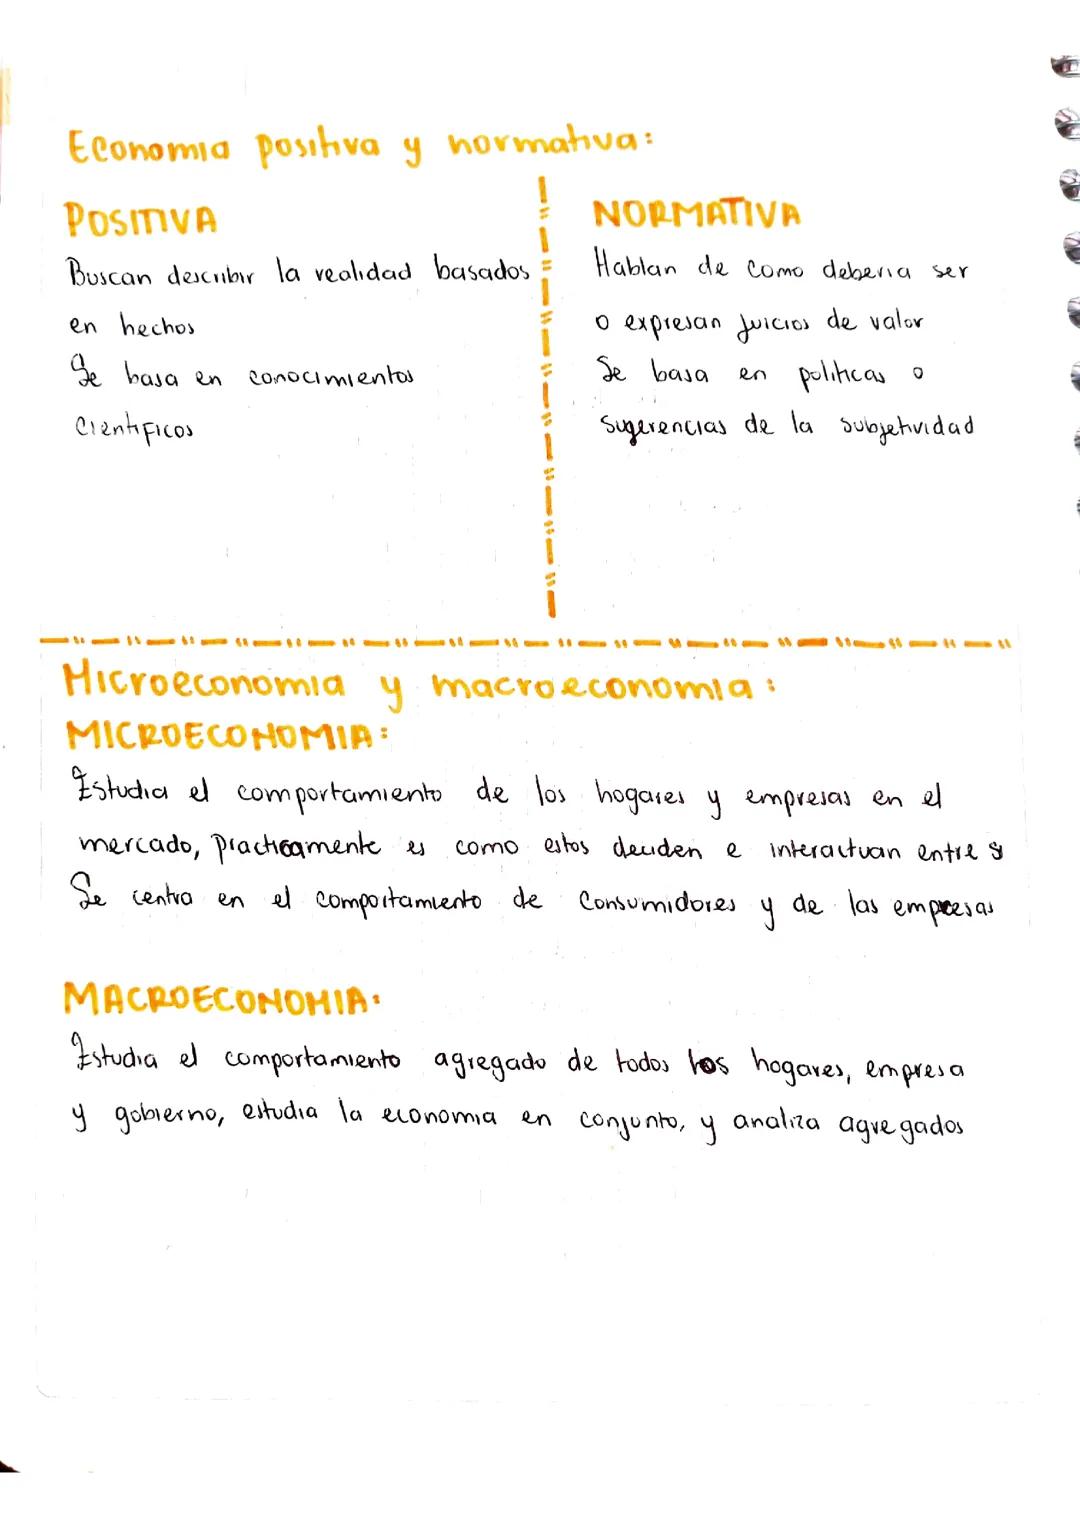 Economia positiva y normativa:
POSITIVA
Buscan describir la realidad basados
en hechos
Se basa en conocimientos
Cientificos
NORMATIVA
Hablan de como deberia ser
o expresan juicios de valor
Se basa en politicas o
sugerencias de la subjetividad
Microeconomia y macroeconomia:
MICROECONOMIA:
Estudia el comportamiento de los hogares y empresas en el
mercado, practicamente es como estos deciden e interactuan entre si
Se centra en el comportamiento de consumidores y de las empresas
MACROECONOMIA:
Estudia el comportamiento agregado de todos los hogares, empresa
y gobierno, estudia la economia en conjunto, y analiza agregados